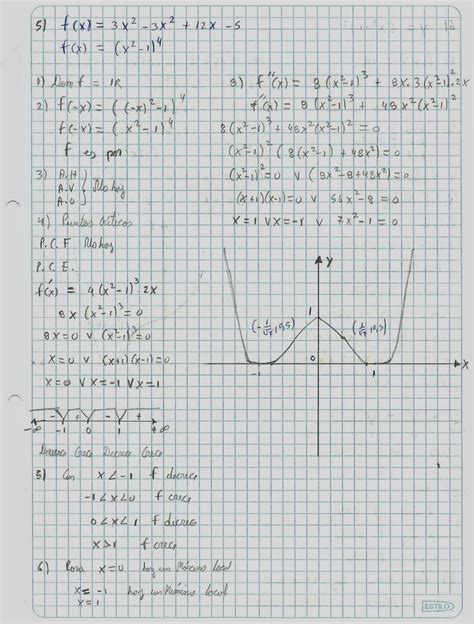 5) f(x) = 3x² - 3x² + 12x - 5
f(x) = (x²-1)⁴
1) Dom f = IR
2) f(-x) = ((-x)²-1)⁴
f(-x) = (x²-1)⁴
f es par
3) A.H
A.V } No hay
A.O
4) Puntos Críticos
P.C.F. No hay
P.C.E.
f'(x) = 4(x²-1)³ 2x
8x(x²-1)³=0
8x=0 v (x²-1)³=0
x=0 v (x+1)(x-1)=0
x=0 v x=-1 v x=1
- + - +
-∞ -1 0 1 +∞
Decrece Crece Decrece Crece
5) Con x<-1 f decrece
-1<x<0 f crece
0<x<1 f decrece
x>1 f crece
6) Para x=0 hay un Máximo local
x=-1 hay un Mínimo local
x=1
8) f''(x) = 8(x²-1)³ + 8x·3(x²-1)²·2x
f''(x) = 8(x²-1)³ + 48x²(x²-1)²
8(x²-1)³ + 48x²(x²-1)²=0
(x²-1)² (8(x²-1) + 48x²)=0
(x²-1)²=0 v (8x²-8+48x²)=0
(x+1)(x-1)=0 v 56x²-8=0
x=1 v x=-1 v 7x²-1=0
y
1
(-1/√7, 0,5) (1/√7, 0,5)
0
-1 1 x
ESTILO